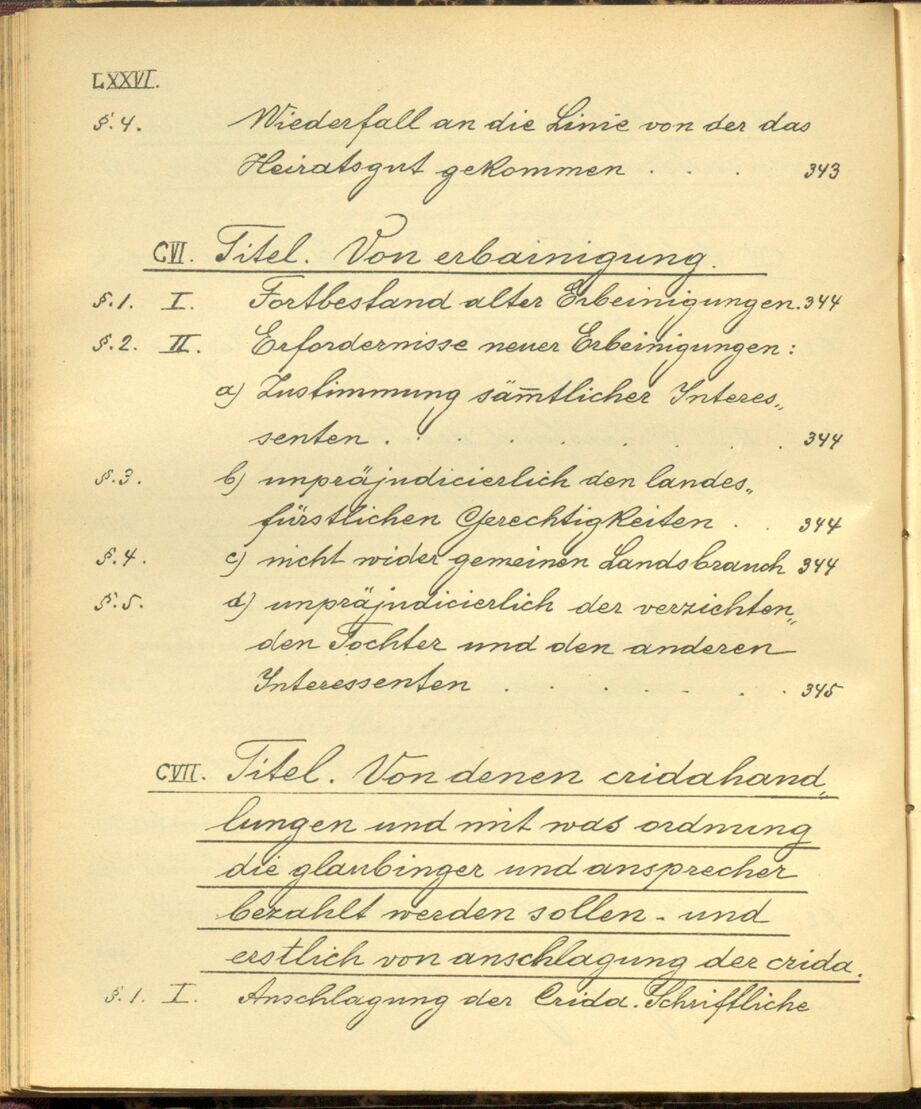 LXXVI.
§. 4. Wiederfall an die Linie von der das
Heiratsgut gekommen . . . 343
CVI. Titel. Von erbainigung.
§. 1. I. Fortbestand alter Erbeinigungen. 344
§. 2. II. Erfordernisse neuer Erbeinigungen:
a) Zustimmung säm̅tlicher Interes„
senten . . . . . . . . 344
§. 3. b) unpräjudicierlich den landes„
fürstlichen Gerechtigkeiten . . 344
§. 4. c) nicht wider gemeinen Landsbrauch 344
§. 5. d) unpräjudicierlich der verzichten„
den Tochter und den anderen
Interessenten . . . . . . 345
CVII. Titel. Von denen cridahand„
lungen und mit was ordnung
die glaubinger und ansprecher
bezahlt werden sollen - und
erstlich von anschlagung der crida.
§. 1. I. Anschlagung der Crida. Schriftliche